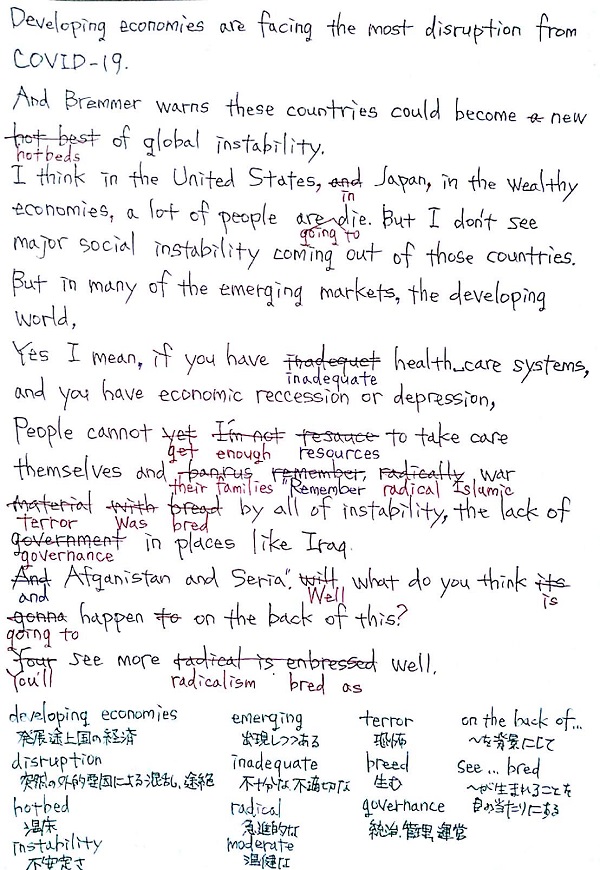 Developing economies are facing the most disruption from
COVID-19.
And Bremmer warns these countries could become a new
hot best of global instability.
hotbeds
I think in the United States, and Japan, in the wealthy
in
economies, a lot of people are die. But I don't see
going to
major social instability coming out of those countries.
But in many of the emerging markets, the developing
world,
Yes I mean, if you have inadequet health_care systems,
inadequate
and you have economic reccession or depression,
People cannot yet I'm not resauce to take care
get enough resources
themselves and panrus remember, radically war
their families "Remember radical Islamic
material with bread by all of instability, the lack of
terror was bred
government in places like Iraq.
governance
And Afganistan and Seria". will what do you think its
and Well is
gonna happen to on the back of this?
going to
Four see more radical is enbressed well.
You'll radicalism bred as
developing economies emerging terror on the back of...
発展途上国の経済 出現しつつある 恐怖 〜を背景にして
disruption inadequate breed see ... bred
突然の外的要因による混乱、途絶 不十分な、不適切な 生む 〜が生まれることを
hotbed radical governance 目の当たりにする
温床 急進的な 統治、管理、運営
instability moderate
不安定さ 温健な